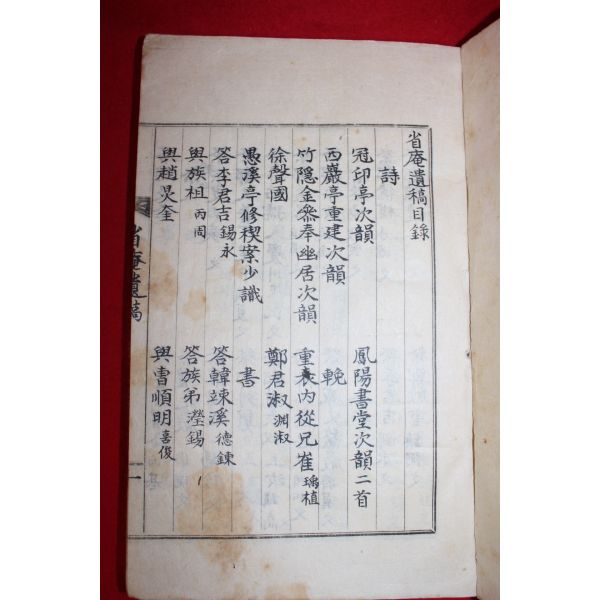 省庵遺稿目錄
詩
冠印亭次韻 鳳陽書堂次韻二首
西巖亭重建次韻 輓
竹隱金參奉幽居次韻 重表內從兄崔瑀植
徐聲國 鄭君淑淵淑
愚溪亭修稧案少識 書
答李君吉錫永 答韓竦溪德鍊
與族祖丙周 答族弟瀅錫
與趙炅奎 與曺順明喜俊
省庵遺稿 一